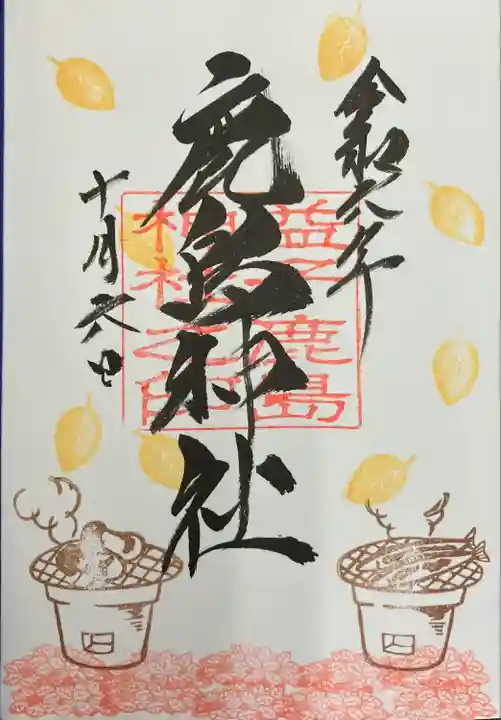 令和六年
鹿島神社
益子鹿島
神社之印
十月六日